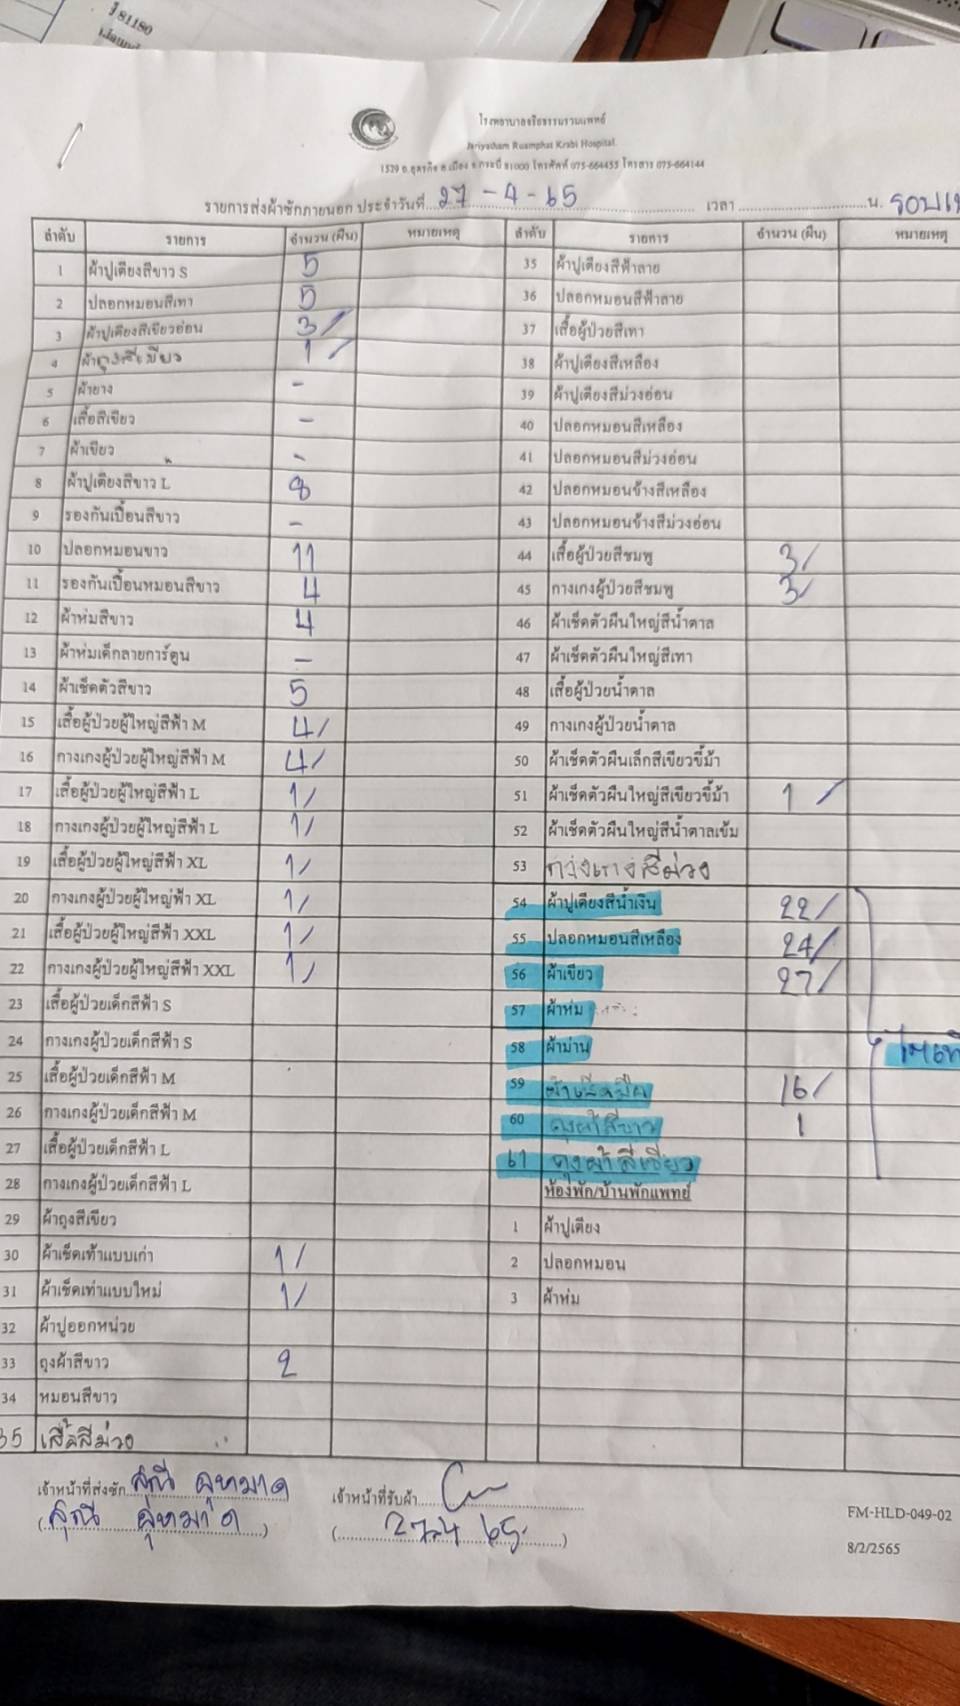 ี 81180
โรงพยาบาลจริยธรรมรวมแพทย์
Jariyatham Ruamphat Krabi Hospital.
1529 ถ.อุตรกิจ อ.เมือง จ.กระบี่ 81000 โทรศัพท์ 075-664455 โทรสาร 075-664144
รายการส่งผ้าซักภายนอก ประจำวันที่ 27-4-65 เวลา น.
ลำดับ รายการ จำนวน (ผืน) หมายเหตุ ลำดับ รายการ จำนวน (ผืน) หมายเหตุ
1 ผ้าปูเตียงสีขาว S 5 35 ผ้าปูเตียงสีฟ้าลาย
2 ปลอกหมอนสีเทา 5 36 ปลอกหมอนสีฟ้าลาย
3 ผ้าปูเตียงสีเขียวอ่อน 3/ 37 เสื้อผู้ป่วยสีเทา
4 ผ้าถุงสีเขียว 1/ 38 ผ้าปูเตียงสีเหลือง
5 ผ้ายาง - 39 ผ้าปูเตียงสีม่วงอ่อน
6 เสื้อสีเขียว - 40 ปลอกหมอนสีเหลือง
7 ผ้าเขียว - 41 ปลอกหมอนสีม่วงอ่อน
8 ผ้าปูเตียงสีขาว L 8 42 ปลอกหมอนข้างสีเหลือง
9 รองกันเปื้อนสีขาว - 43 ปลอกหมอนข้างสีม่วงอ่อน
10 ปลอกหมอนขาว 11 44 เสื้อผู้ป่วยสีชมพู 3/
11 รองกันเปื้อนหมอนสีขาว 4 45 กางเกงผู้ป่วยสีชมพู 3/
12 ผ้าห่มสีขาว 4 46 ผ้าเช็ดตัวผืนใหญ่สีน้ำตาล
13 ผ้าห่มเด็กลายการ์ตูน - 47 ผ้าเช็ดตัวผืนใหญ่สีเทา
14 ผ้าเช็ดตัวสีขาว 5 48 เสื้อผู้ป่วยน้ำตาล
15 เสื้อผู้ป่วยผู้ใหญ่สีฟ้า M 4/ 49 กางเกงผู้ป่วยน้ำตาล
16 กางเกงผู้ป่วยผู้ใหญ่สีฟ้า M 4/ 50 ผ้าเช็ดตัวผืนเล็กสีเขียวขี้ม้า
17 เสื้อผู้ป่วยผู้ใหญ่สีฟ้า L 1/ 51 ผ้าเช็ดตัวผืนใหญ่สีเขียวขี้ม้า 1 /
18 กางเกงผู้ป่วยผู้ใหญ่สีฟ้า L 1/ 52 ผ้าเช็ดตัวผืนใหญ่สีน้ำตาลเข้ม
19 เสื้อผู้ป่วยผู้ใหญ่สีฟ้า XL 1/ 53 กางเกงสีม่วง
20 กางเกงผู้ป่วยผู้ใหญ่สีฟ้า XL 1/ 54 ผ้าปูเตียงสีน้ำเงิน 22/
21 เสื้อผู้ป่วยผู้ใหญ่สีฟ้า XXL 1/ 55 ปลอกหมอนสีเหลือง 24/
22 กางเกงผู้ป่วยผู้ใหญ่สีฟ้า XXL 1/ 56 ผ้าเขียว 27/
23 เสื้อผู้ป่วยเด็กสีฟ้า S 57 ผ้าห่ม
24 กางเกงผู้ป่วยเด็กสีฟ้า S 58 ผ้าม่าน
25 เสื้อผู้ป่วยเด็กสีฟ้า M 59 ผ้าเช็ดมือ 16/
26 กางเกงผู้ป่วยเด็กสีฟ้า M 60 ถุงผ้าสีขาว 1
27 เสื้อผู้ป่วยเด็กสีฟ้า L 61 ถุงผ้าสีเขียว
28 กางเกงผู้ป่วยเด็กสีฟ้า L ห้องพัก/บ้านพักแพทย์
29 ผ้าถุงสีเขียว 1 ผ้าปูเตียง
30 ผ้าเช็ดเท้าแบบเก่า 1/ 2 ปลอกหมอน
31 ผ้าเช็ดเท่าแบบใหม่ 1/ 3 ผ้าห่ม
32 ผ้าปูออกหน่วย
33 ถุงผ้าสีขาว 2
34 หมอนสีขาว
35 เสื้อสีม่วง
เจ้าหน้าที่ส่งซัก เจ้าหน้าที่รับผ้า
27.4 65
FM-HLD-049-02
8/2/2565